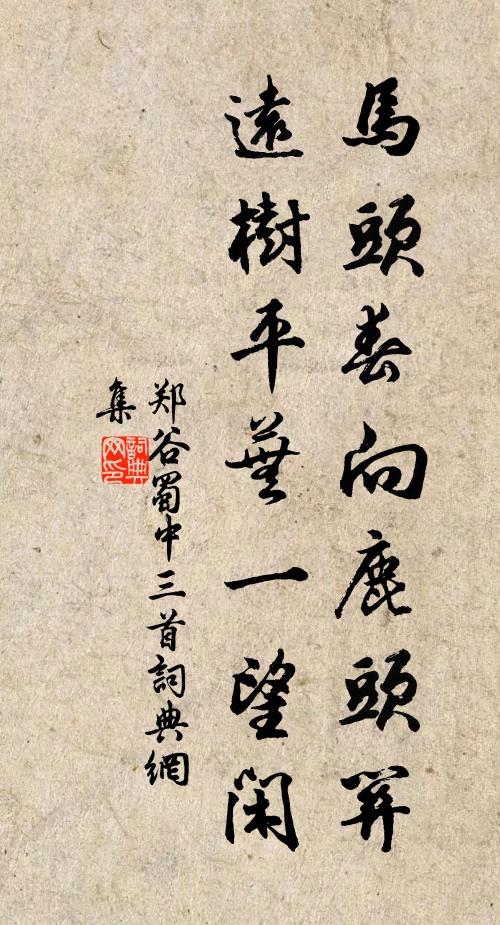 馬頭春向鹿頭關
遠樹平蕪一望閑
郑谷蜀中三首詞典網
集
詞典
网印